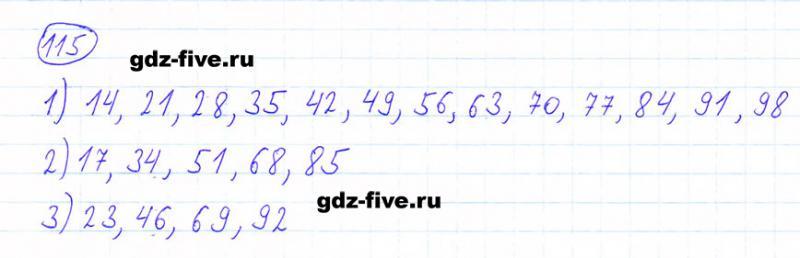 115
gdz-five.ru
1) 14, 21, 28, 35, 42, 49, 56, 63, 70, 77, 84, 91, 98
2) 17, 34, 51, 68, 85
3) 23, 46, 69, 92
gdz-five.ru